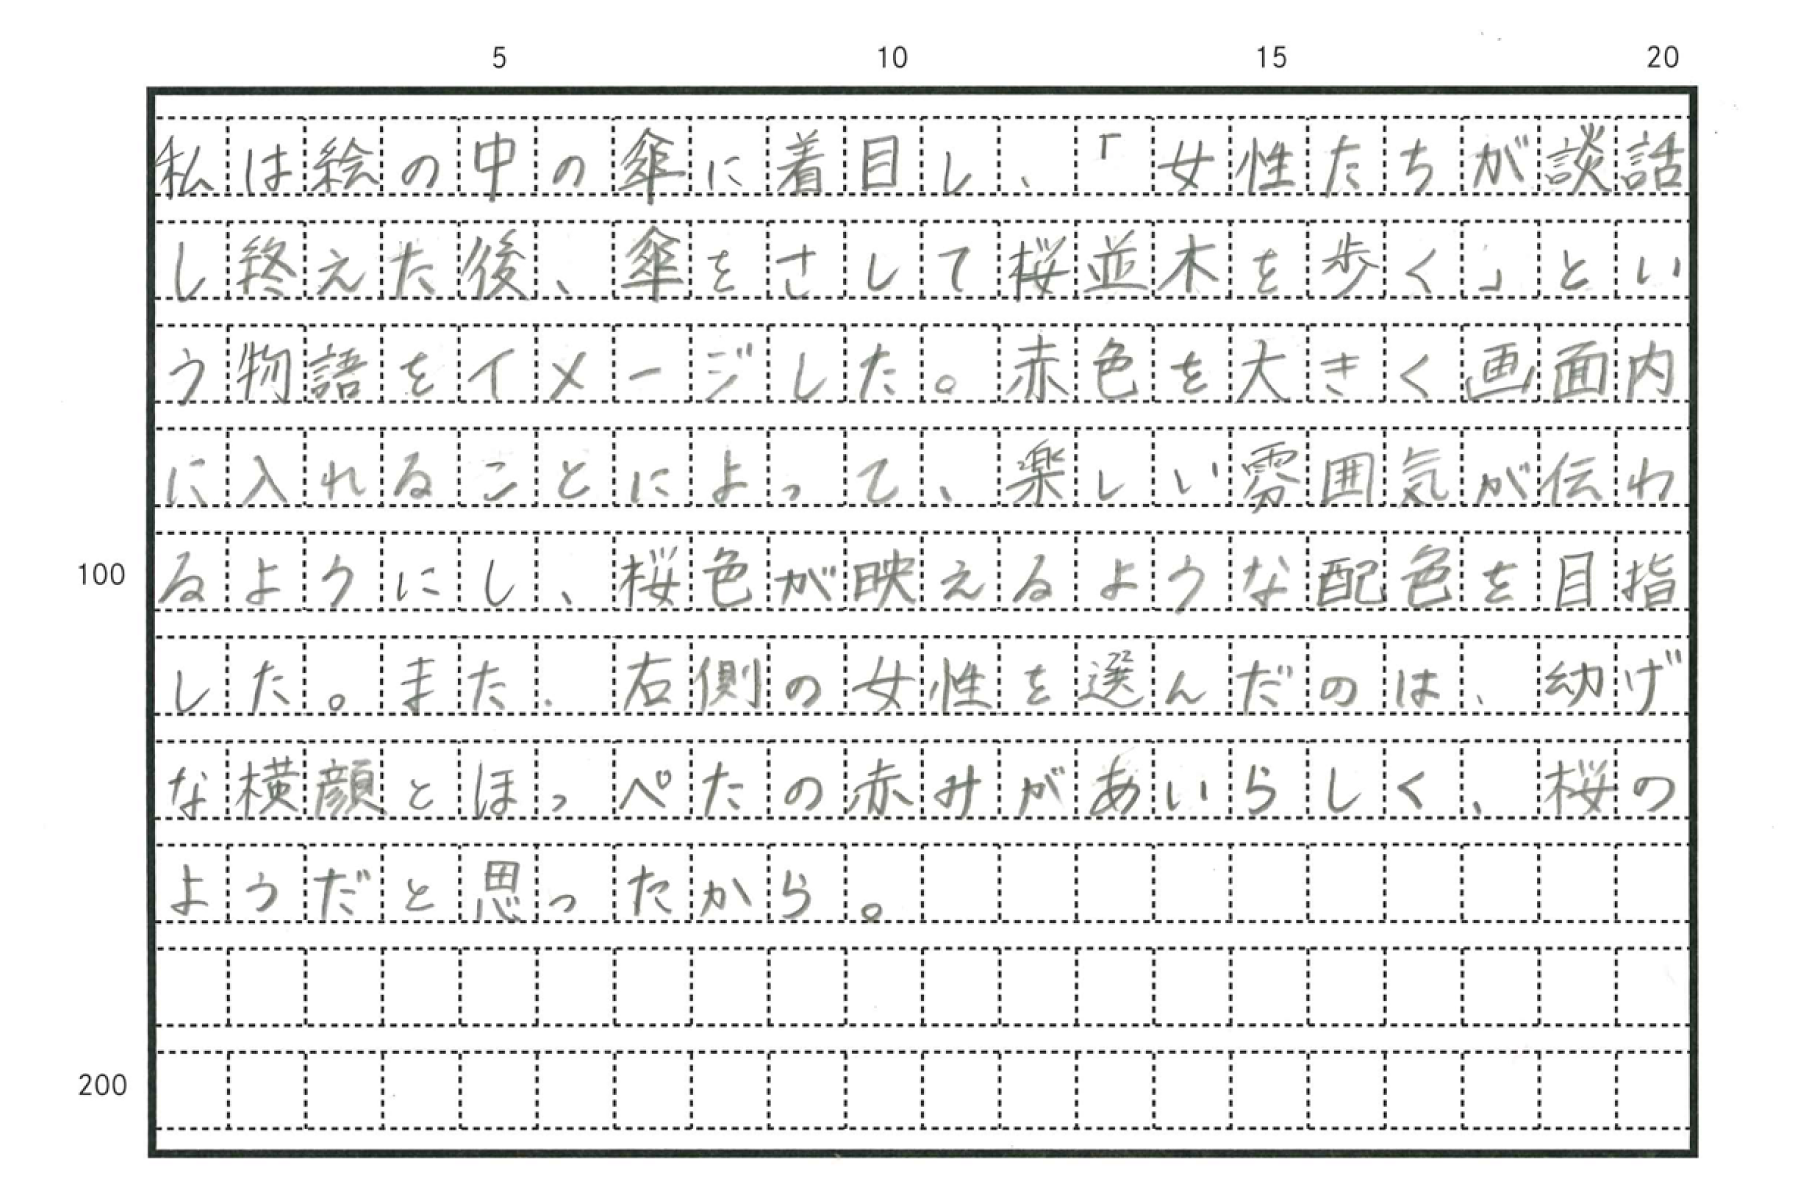 5 10 15 20
私は絵の中の傘に着目し、「女性たちが談話
し終えた後、傘をさして桜並木を歩く」とい
う物語をイメージした。赤色を大きく画面内
に入れることによって、楽しい雰囲気が伝わ
100 るようにし、桜色が映えるような配色を目指
した。また、右側の女性を選んだのは、幼げ
な横顔とほっぺたの赤みがあいらしく、桜の
ようだと思ったから。
200